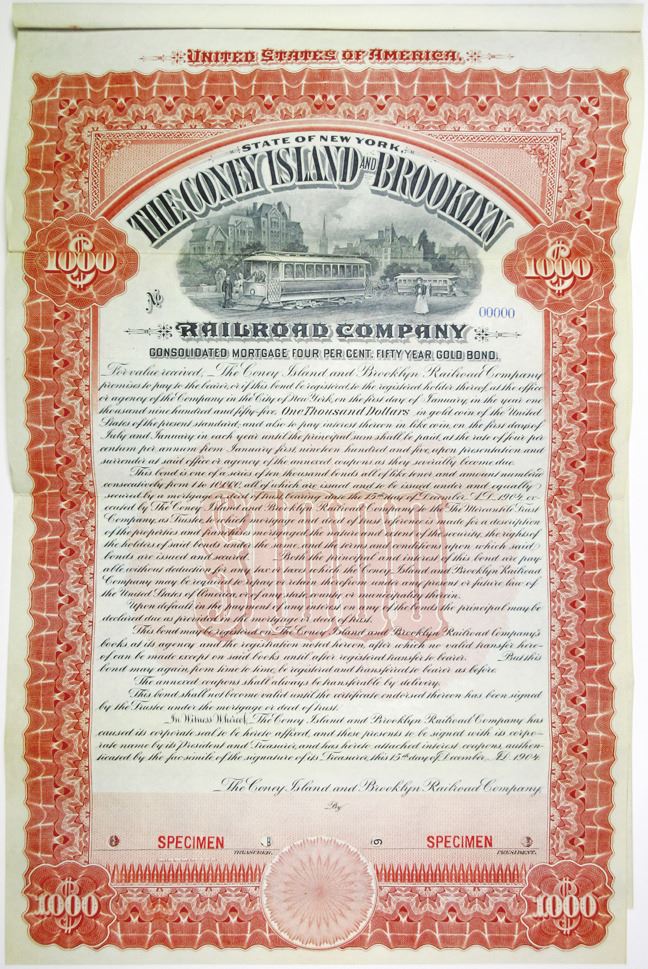 UNITED STATES OF AMERICA.
STATE OF NEW YORK,
THE CONEY ISLAND AND BROOKLYN
$1000
$1000
No
00000
RAILROAD COMPANY
CONSOLIDATED MORTGAGE FOUR PER CENT. FIFTY YEAR GOLD BOND.
For value received, The Coney Island and Brooklyn Railroad Company
promises to pay to the bearer, or if this bond be registered, to the registered holder thereof, at the office
or agency of the Company in the City of New York, on the first day of January, in the year one
thousand nine hundred and fifty-five, One Thousand Dollars in gold coin of the United
States of the present standard, and also to pay interest thereon in like coin, on the first days of
July and January in each year until the principal sum shall be paid, at the rate of four per
centum per annum from January first, nineteen hundred and five, upon presentation and
surrender at said office or agency of the annexed coupons as they severally become due.
This bond is one of a series of ten thousand bonds, all of like tenor and amount, numbered
consecutively from 1 to 10,000, all of which are issued and to be issued under and equally
secured by a mortgage or deed of trust bearing date the 15th day of December, A.D. 1904, ex-
ecuted by The Coney Island and Brooklyn Railroad Company to the The Mercantile Trust
Company, as Trustee, to which mortgage and deed of trust reference is made for a description
of the properties and franchises mortgaged, the nature and extent of the security, the rights of
the holders of said bonds under the same, and the terms and conditions upon which said
bonds are issued and secured. Both the principal and interest of this bond are pay-
able without deduction for any tax or taxes which the Coney Island and Brooklyn Railroad
Company may be required to pay or retain therefrom under any present or future law of
the United States of America, or of any state, county or municipality therein.
Upon default in the payment of any interest, on any of the bonds the principal may be
declared due as provided in the mortgage or deed of trust.
This bond may be registered on The Coney Island and Brooklyn Railroad Company's
books at its agency and the registration noted hereon, after which no valid transfer here-
of can be made except on said books until after registered transfer to bearer. But this
bond may again, from time to time, be registered and transferred to bearer as before.
The annexed coupons shall always be transferable by delivery.
This bond shall not become valid until the certificate endorsed thereon has been signed
by the Trustee under the mortgage or deed of trust.
In Witness Whereof, The Coney Island and Brooklyn Railroad Company has
caused its corporate seal to be hereto affixed, and these presents to be signed with its corpo-
rate name by its President and Treasurer, and has hereto attached interest coupons, authen-
ticated by the facsimile of the signature of its Treasurer, this 15th day of December, A.D. 1904.
The Coney Island and Brooklyn Railroad Company,
By
SPECIMEN
SPECIMEN
TREASURER.
PRESIDENT.
$1000
$1000